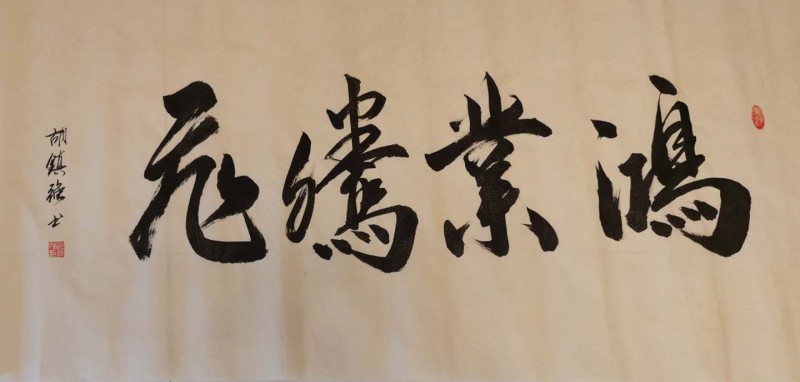 鴻業騰飛
胡鎮強書